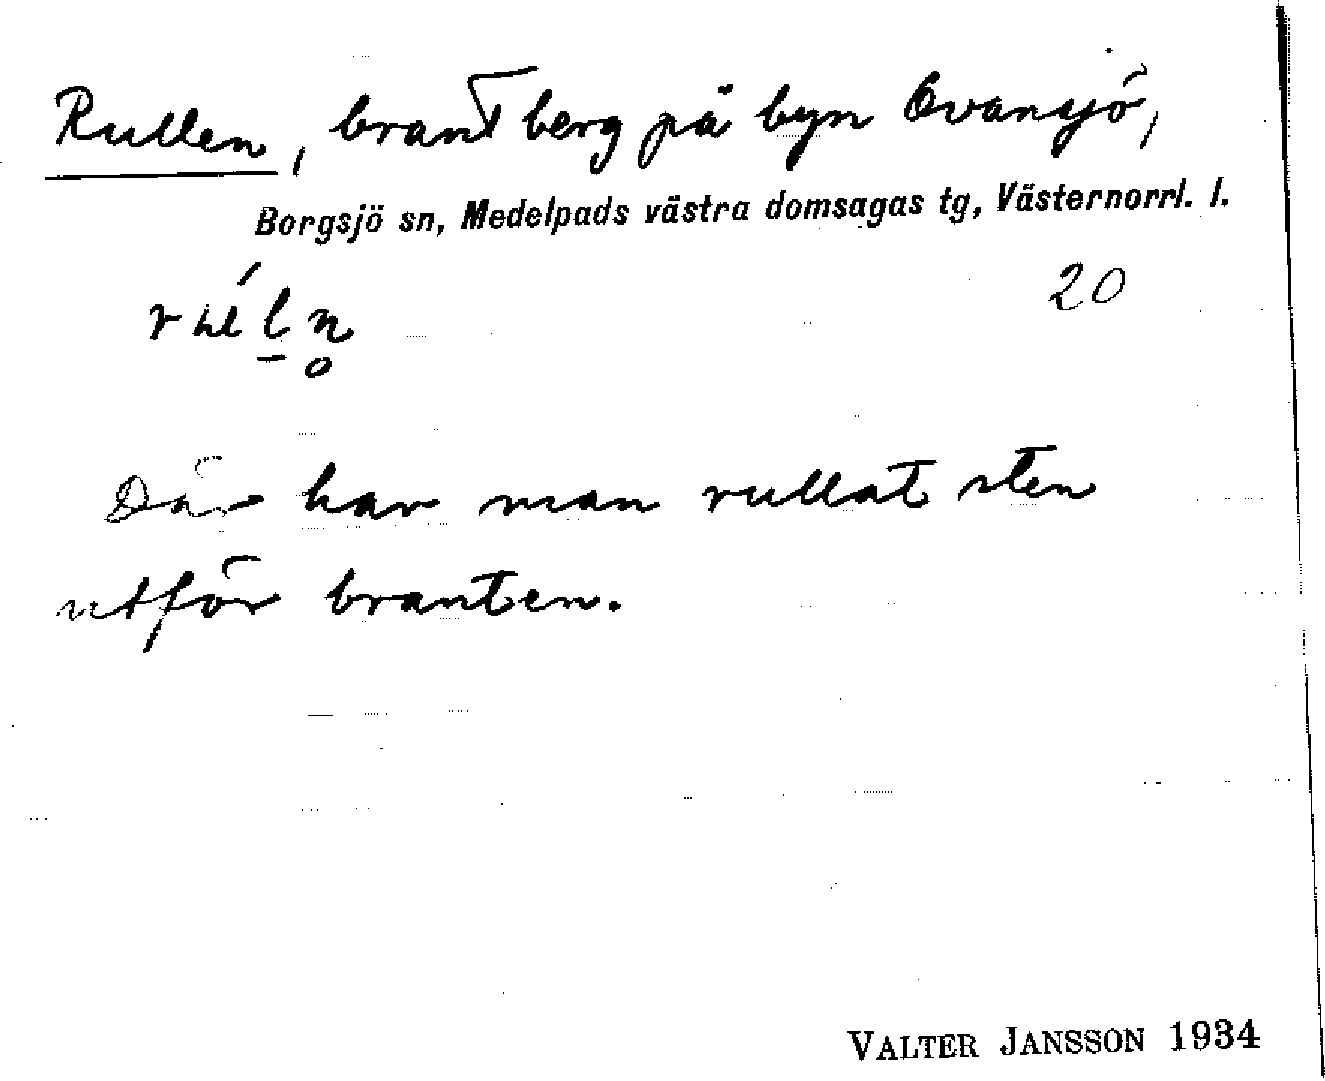 Rullen, brant berg på byn Ovansjö,
Borgsjö sn, Medelpads västra domsagas tg, Västernorrl. l.
20
Där har man rullat sten
utför branten.
VALTER JANSSON 1934